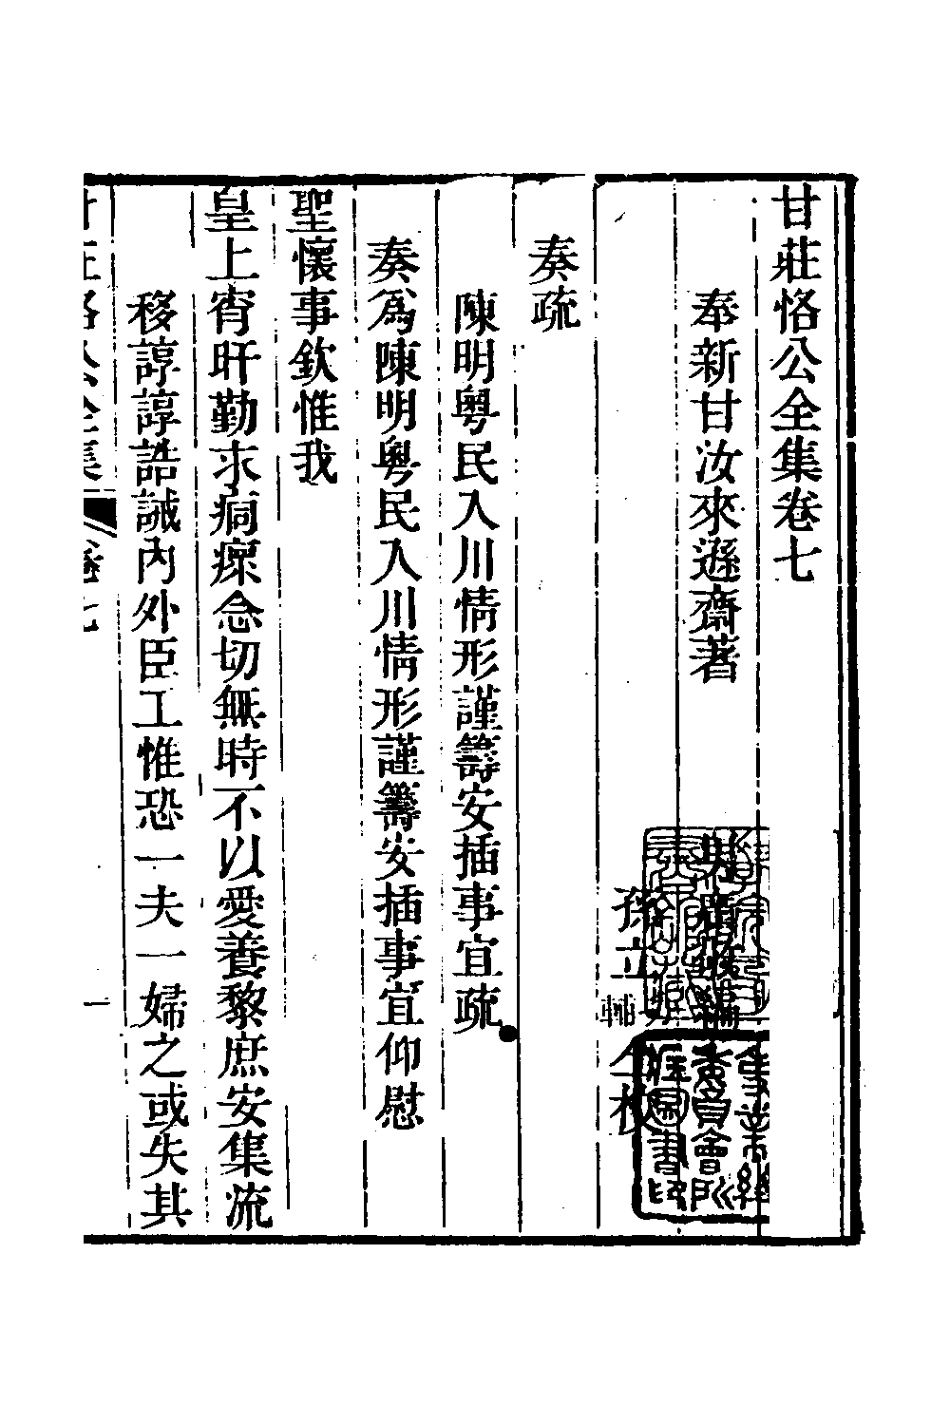 甘莊恪公全集卷七
奉新甘汝來遜齋著
孫立輔仝校
奏疏
陳明粤民入川情形謹籌安插事宜疏
奏爲陳明粤民入川情形謹籌安插事宜仰慰
聖懷事欽惟我
皇上宵旰勤求痌瘝念切無時不以愛養黎庶安集流
移諄諄誥誡內外臣工惟恐一夫一婦之或失其
甘莊恪公全集 卷七 一